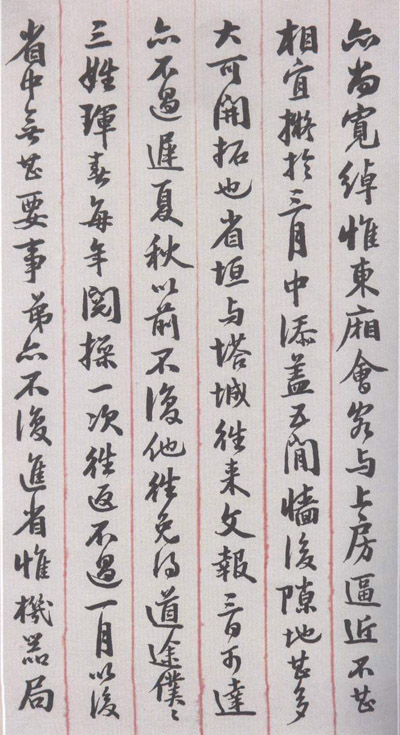 亦尚寬綽惟東廂會客与上房逼近不甚
相宜擬於三月中添蓋五間牆後隙地甚多
大可開拓也省垣与塔城往来文報三日可達
亦不過遲夏秋以前不復他往免得道途僕〻
三姓琿春每年閱操一次往返不過一月以後
省中無甚要事弟亦不復進省惟機器局